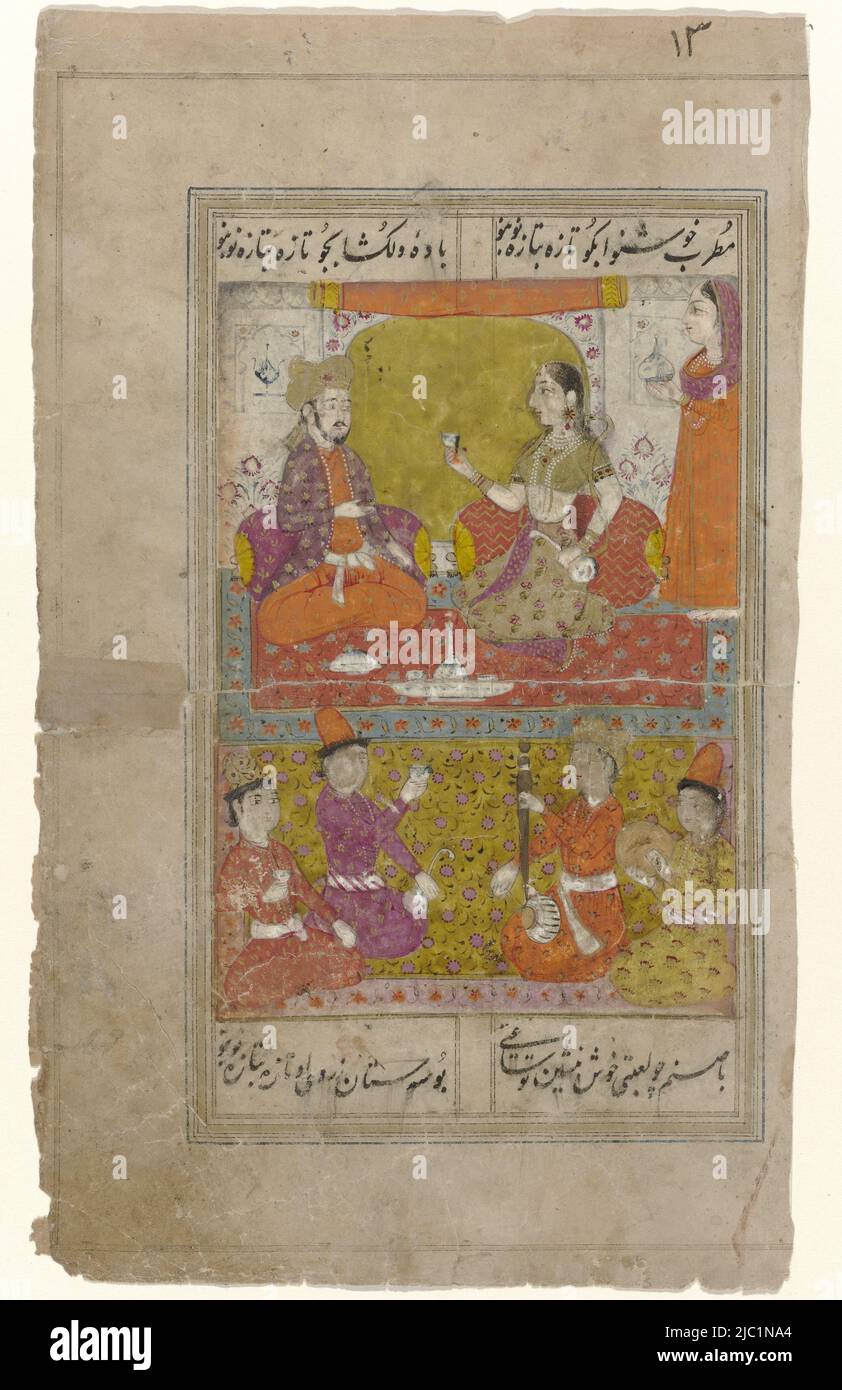 ١٣
مُطرب خوشنوا بکُو تازه بتازه نوبنو
بادهٔ دلکشا بجُو تازه بتازه نوبنو
با صنم چو لعبتی خوش بنشین تو ساعتی
بُوسه ستان ز روی او تازه بتازه نوبنو
alamy
Image ID: 2JC1NA4
www.alamy.com